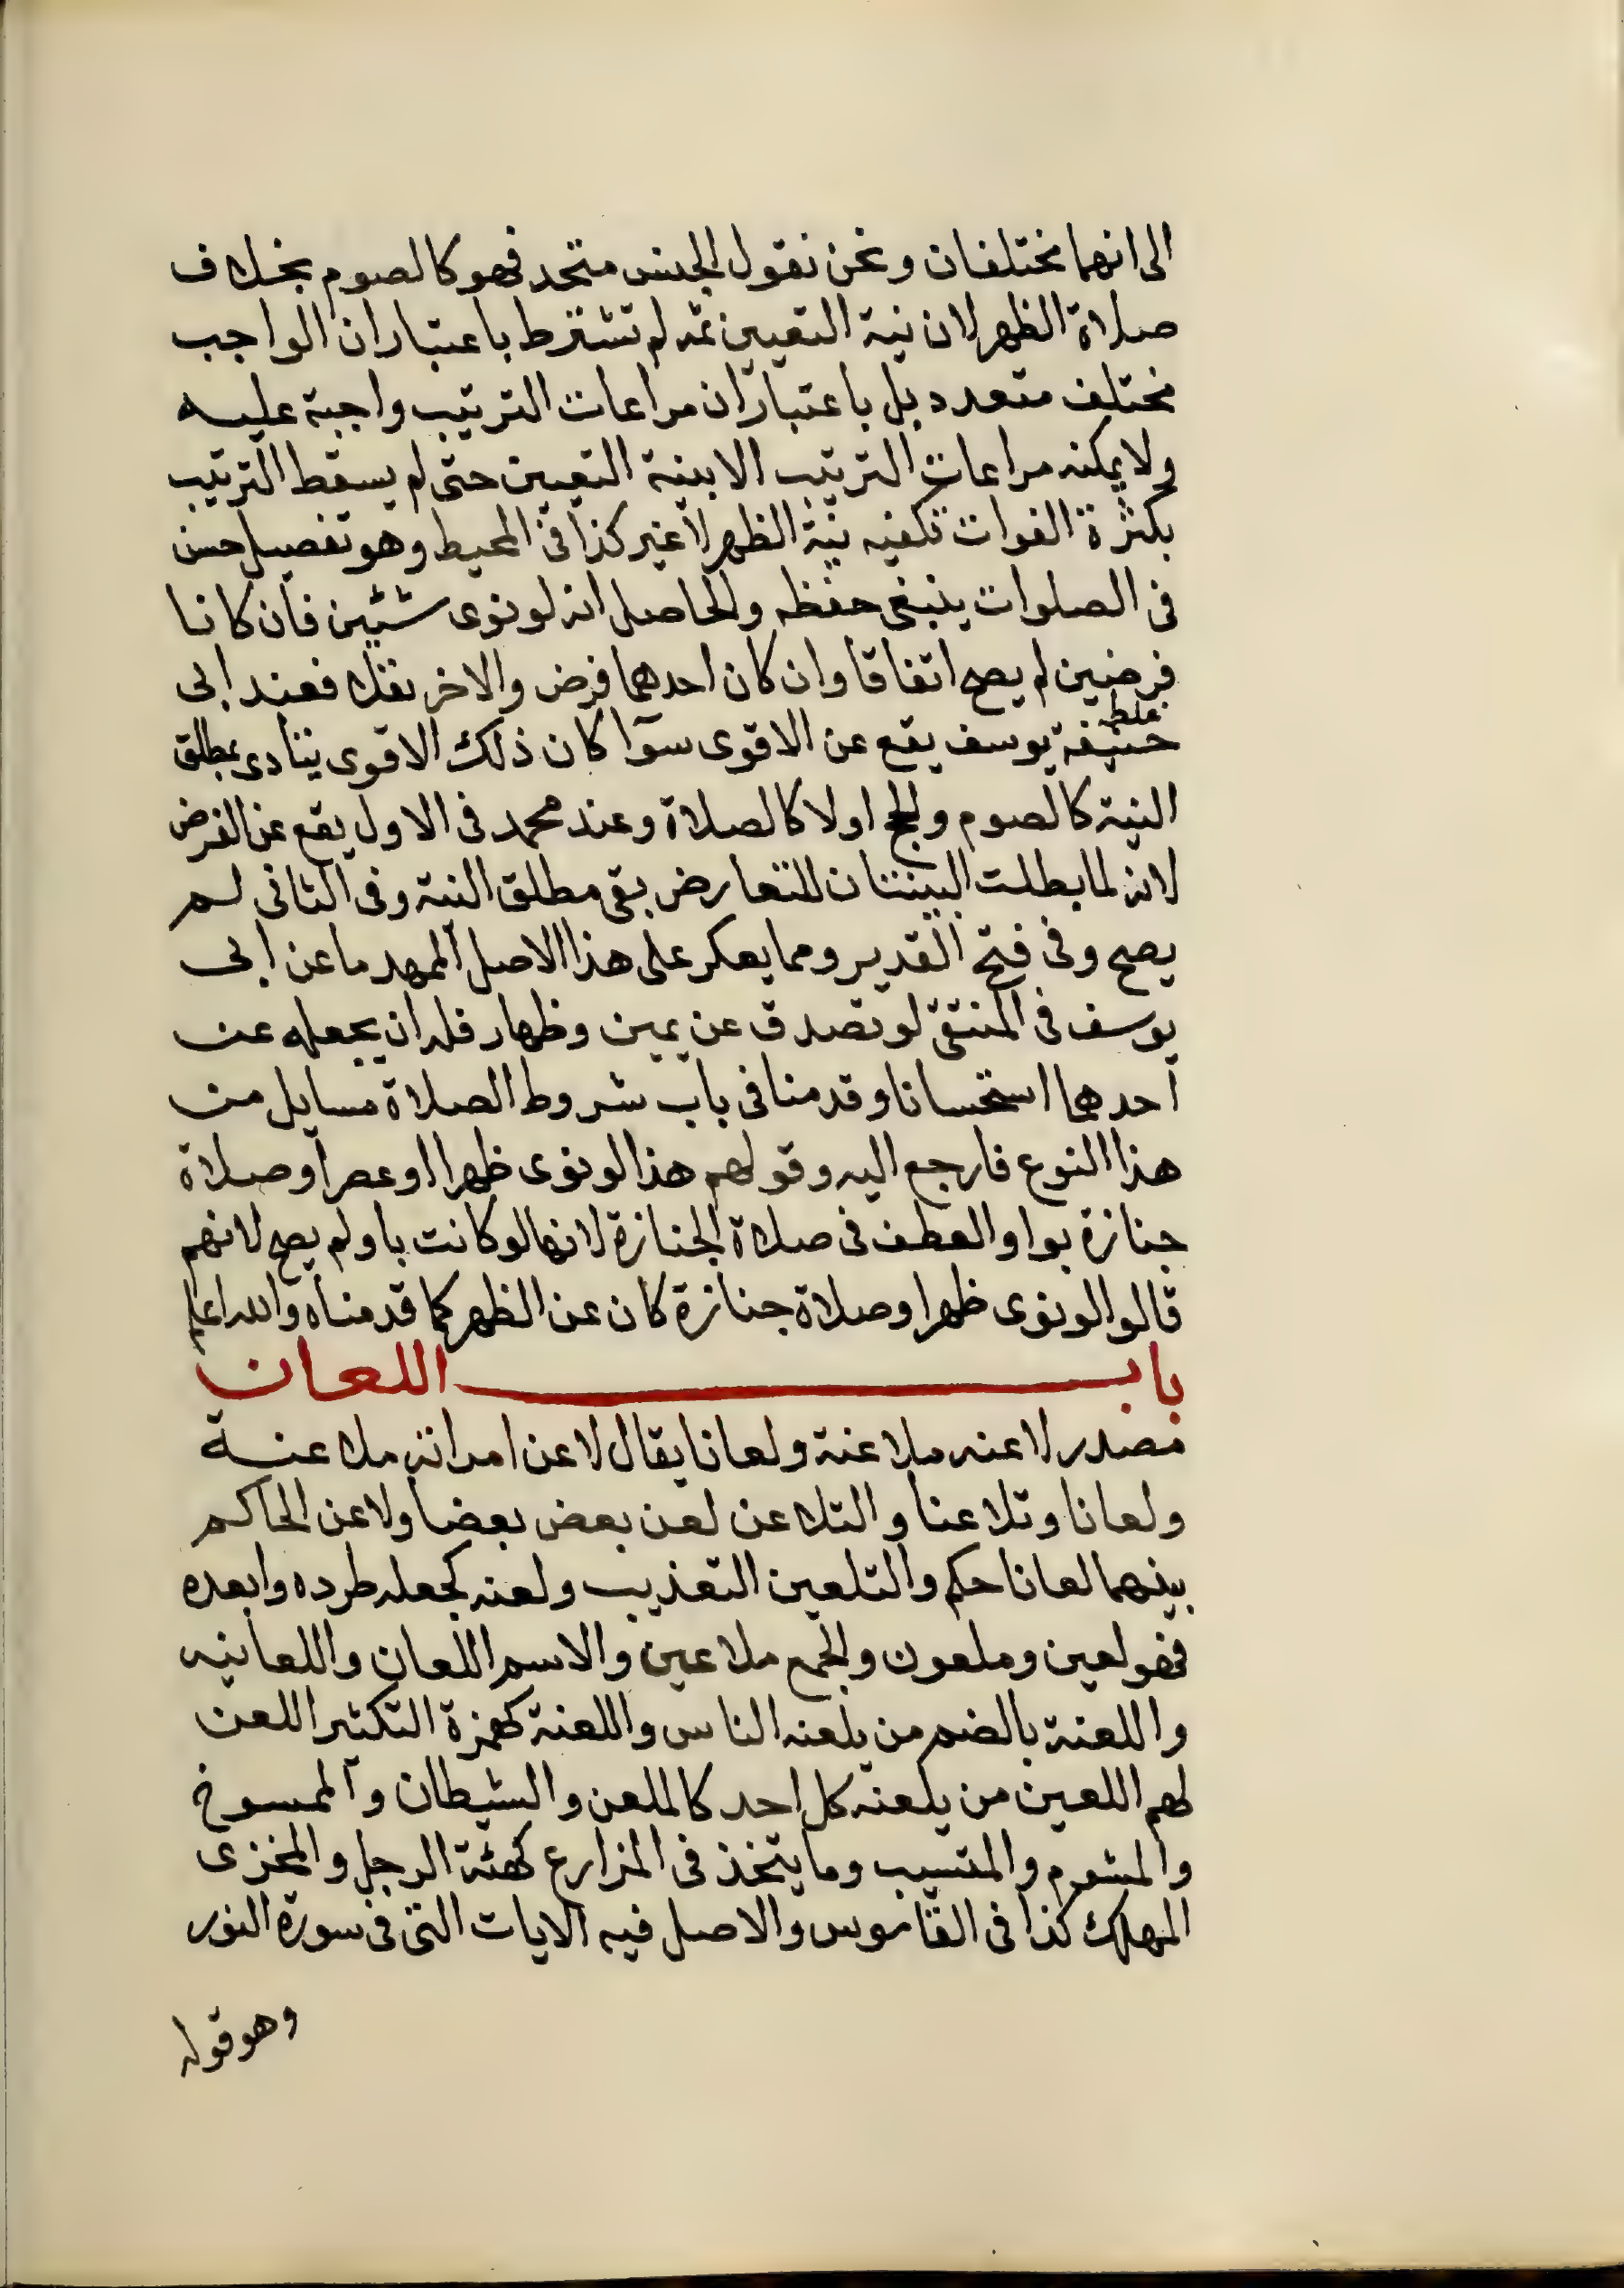 الى انهما مختلفان ونحن نقول الجنس متحد فهو كالصوم بخلاف
صلاة الظهر لان نية التعيين ثمه لم تشترط باعتبار ان الواجب
مختلف متعدد بل باعتبار ان مراعات الترتيب واجبة عليه
ولا يمكنه مراعات الترتيب الا بنية التعيين حتى لم يسقط الترتيب
بكثرة الفوات تكفيه نية الظهر لا غير كذا فى المحيط وهو تفصيل حسن
فى الصلوات ينبغى حفظه والحاصل انه لو نوى شيئين فان كانا
فرضين لم يصح اتفاقا وان كان احدهما فرض والاخر نفلا فعند ابى
غلط
حنيفة يوسف يقع عن الاقوى سوآ كان ذلك الاقوى يتادى بمطلق
النية كالصوم والحج اولا كالصلاة وعند محمد فى الاول يقع عن الفرض
لانه لما بطلت البينتان للتعارض بقى مطلق النية وفى الثانى لم
يصح وفى فتح القدير ومما يعكر على هذا الاصل الممهد ما عن ابى
يوسف فى المنتقى لو تصدق عن يمين وظهار فله ان يجعله عن
احدهما استحسانا وقدمنا فى باب شروط الصلاة مسايل من
هذا النوع فارجع اليه وقولهم هذا لو نوى ظهرا اوعصرا وصلاة
جنازة بواو العطف فى صلاة الجنازة لانها لو كانت باو لم يصح لانهم
قالوا لو نوى ظهرا وصلاة جنازة كان عن الظهر كما قدمناه والله اعلم
باب اللعان
مصدر لاعنه ملاعنة ولعانا يقال لاعن امراته ملاعنة
ولعانا وتلاعنا والتلاعن لعن بعض بعضا ولاعن الحاكم
بينهما لعانا حكم والتلعين التعذيب ولعنه كجعله طرده وابعده
فهو لعين وملعون والجمع ملاعين والاسم اللعان واللعانيه
واللعنة بالضم من يلعنه الناس واللعنة كهمزة التكثير اللعن
لهم اللعين من يلعنه كل احد كالملعن والشيطان والممسوخ
والمشوم والمتسيب وما يتخذ فى المزارع كهئة الرجل والمخزى
المهلك كذا فى القاموس والاصل فيه الايات التى فى سورة النور
وهو قوله